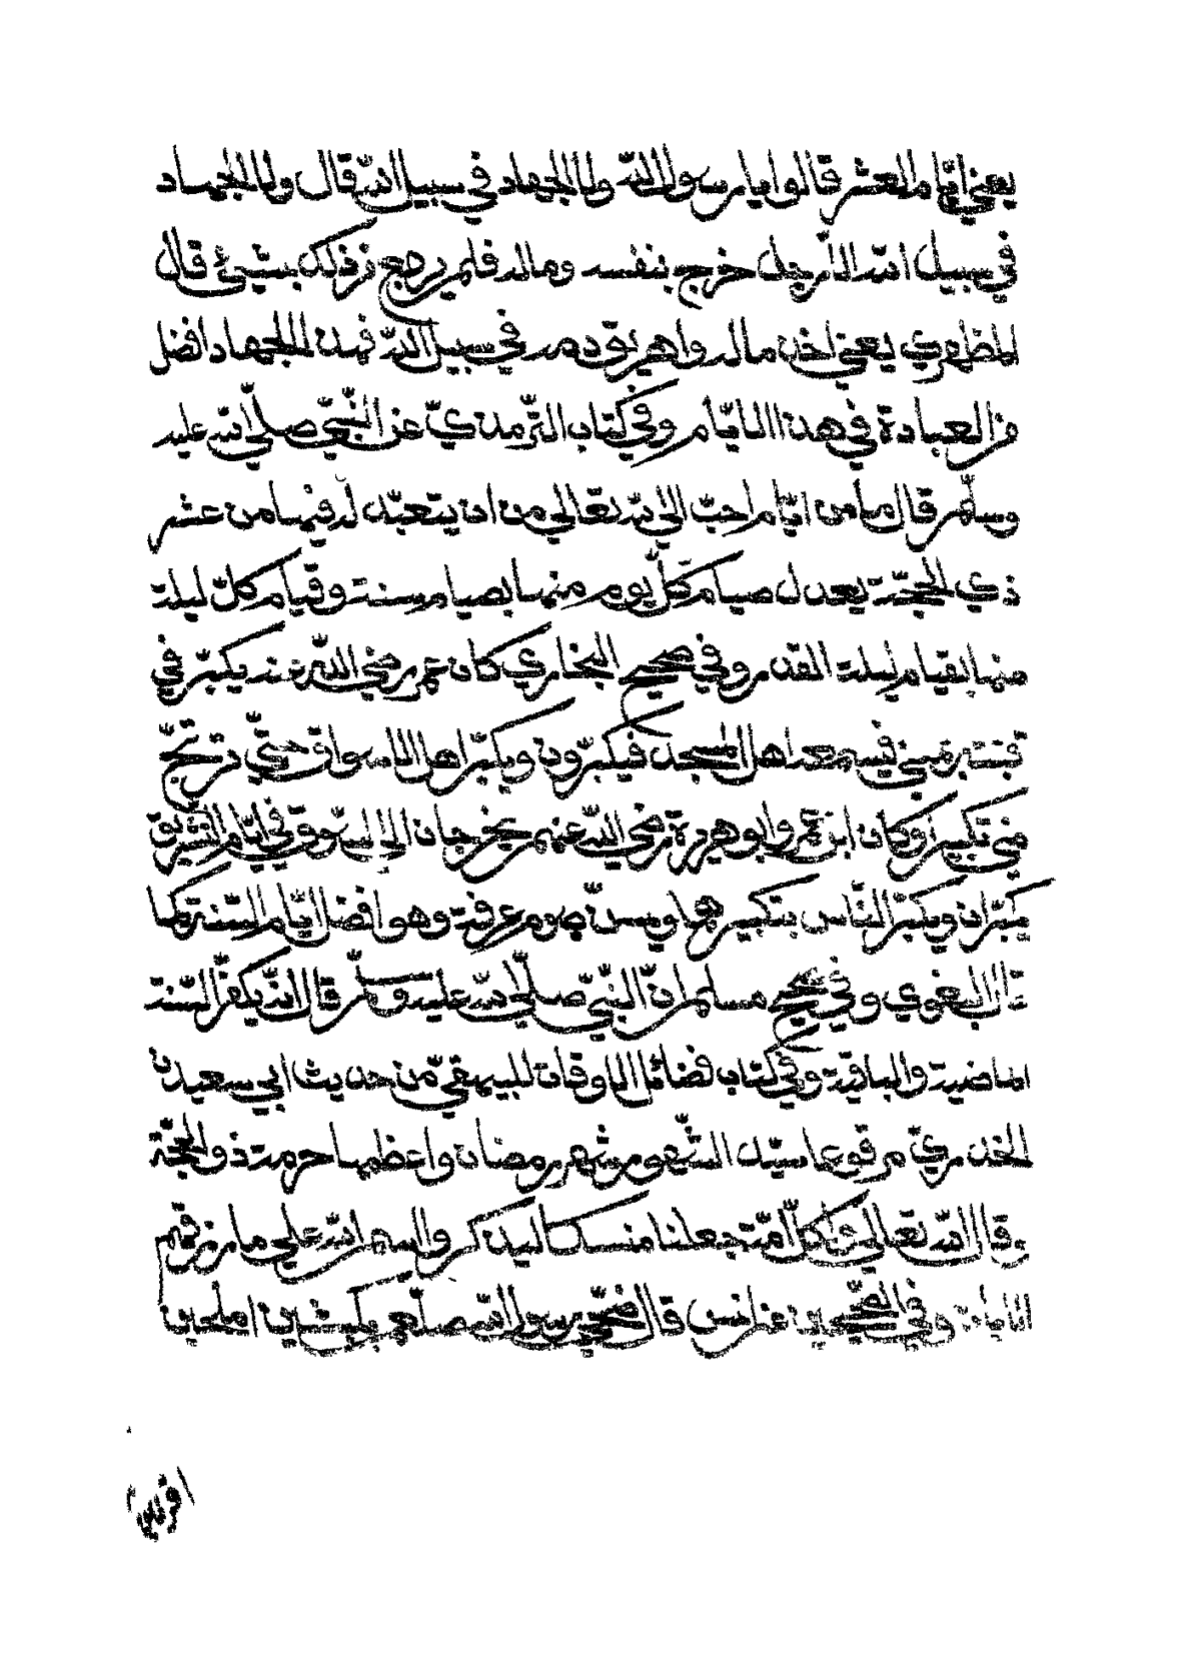 يعني ايّام العشر قالوا يا رسول اللّه ولا الجهاد في سبيل اللّه قال ولا الجهاد
في سبيل اللّه الّا رجل خرج بنفسه وماله فلم يرجع من ذلك بشيئ قال
المظهري يعني اخذ ماله واهريق دمه في سبيل اللّه فهذا الجهاد افضل
من العبادة في هذا الايّام وفي كتاب التّرمذيّ عن النّبيّ صلّي اللّه عليه
وسلّم قال ما من ايّام احبّ الي اللّه تعالي من ان يتعبّد له فيها من عشر
ذي الحجّة يعدل صيام كلّ يوم منها بصيام سنة وقيام كلّ ليلة
منها بقيام ليلة القدر وفي صحيح البخاري كان عمر رضي اللّه عنه يكبّر في
قبّته بمني فيسمعه اهل المسجد فيكبّرون ويكبّر اهل الاسواق حتّي ترتجّ
مني تكبيرا وكان ابن عمر وابو هريرة رضي اللّه عنهم يخرجان الي السّوق في ايّام التّشريق
يكبّران ويكبّر النّاس بتكبيرهما ويسنّ صوم عرفة وهو افضل ايّام السّنة كما
قال البغوي وفي صحيح مسلم انّ النّبيّ صلّي اللّه عليه وسلّم قال انّه يكفّر السّنة
الماضية والباقية وفي كتاب فضائل الاوقات للبيهقيّ من حديث ابي سعيدن
الخدريّ مرفوعا سيّد الشّهور شهر رمضان واعظمها حرمة ذو الحجّة
وقال اللّه تعالي ولكلّ امّة جعلنا منسكا ليذكروا اسم اللّه علي ما رزقهم
الايات وفي الصّحيحين عن انس قال ضحّي رسول اللّه صلّعم بكبشين املحين
اقرنين